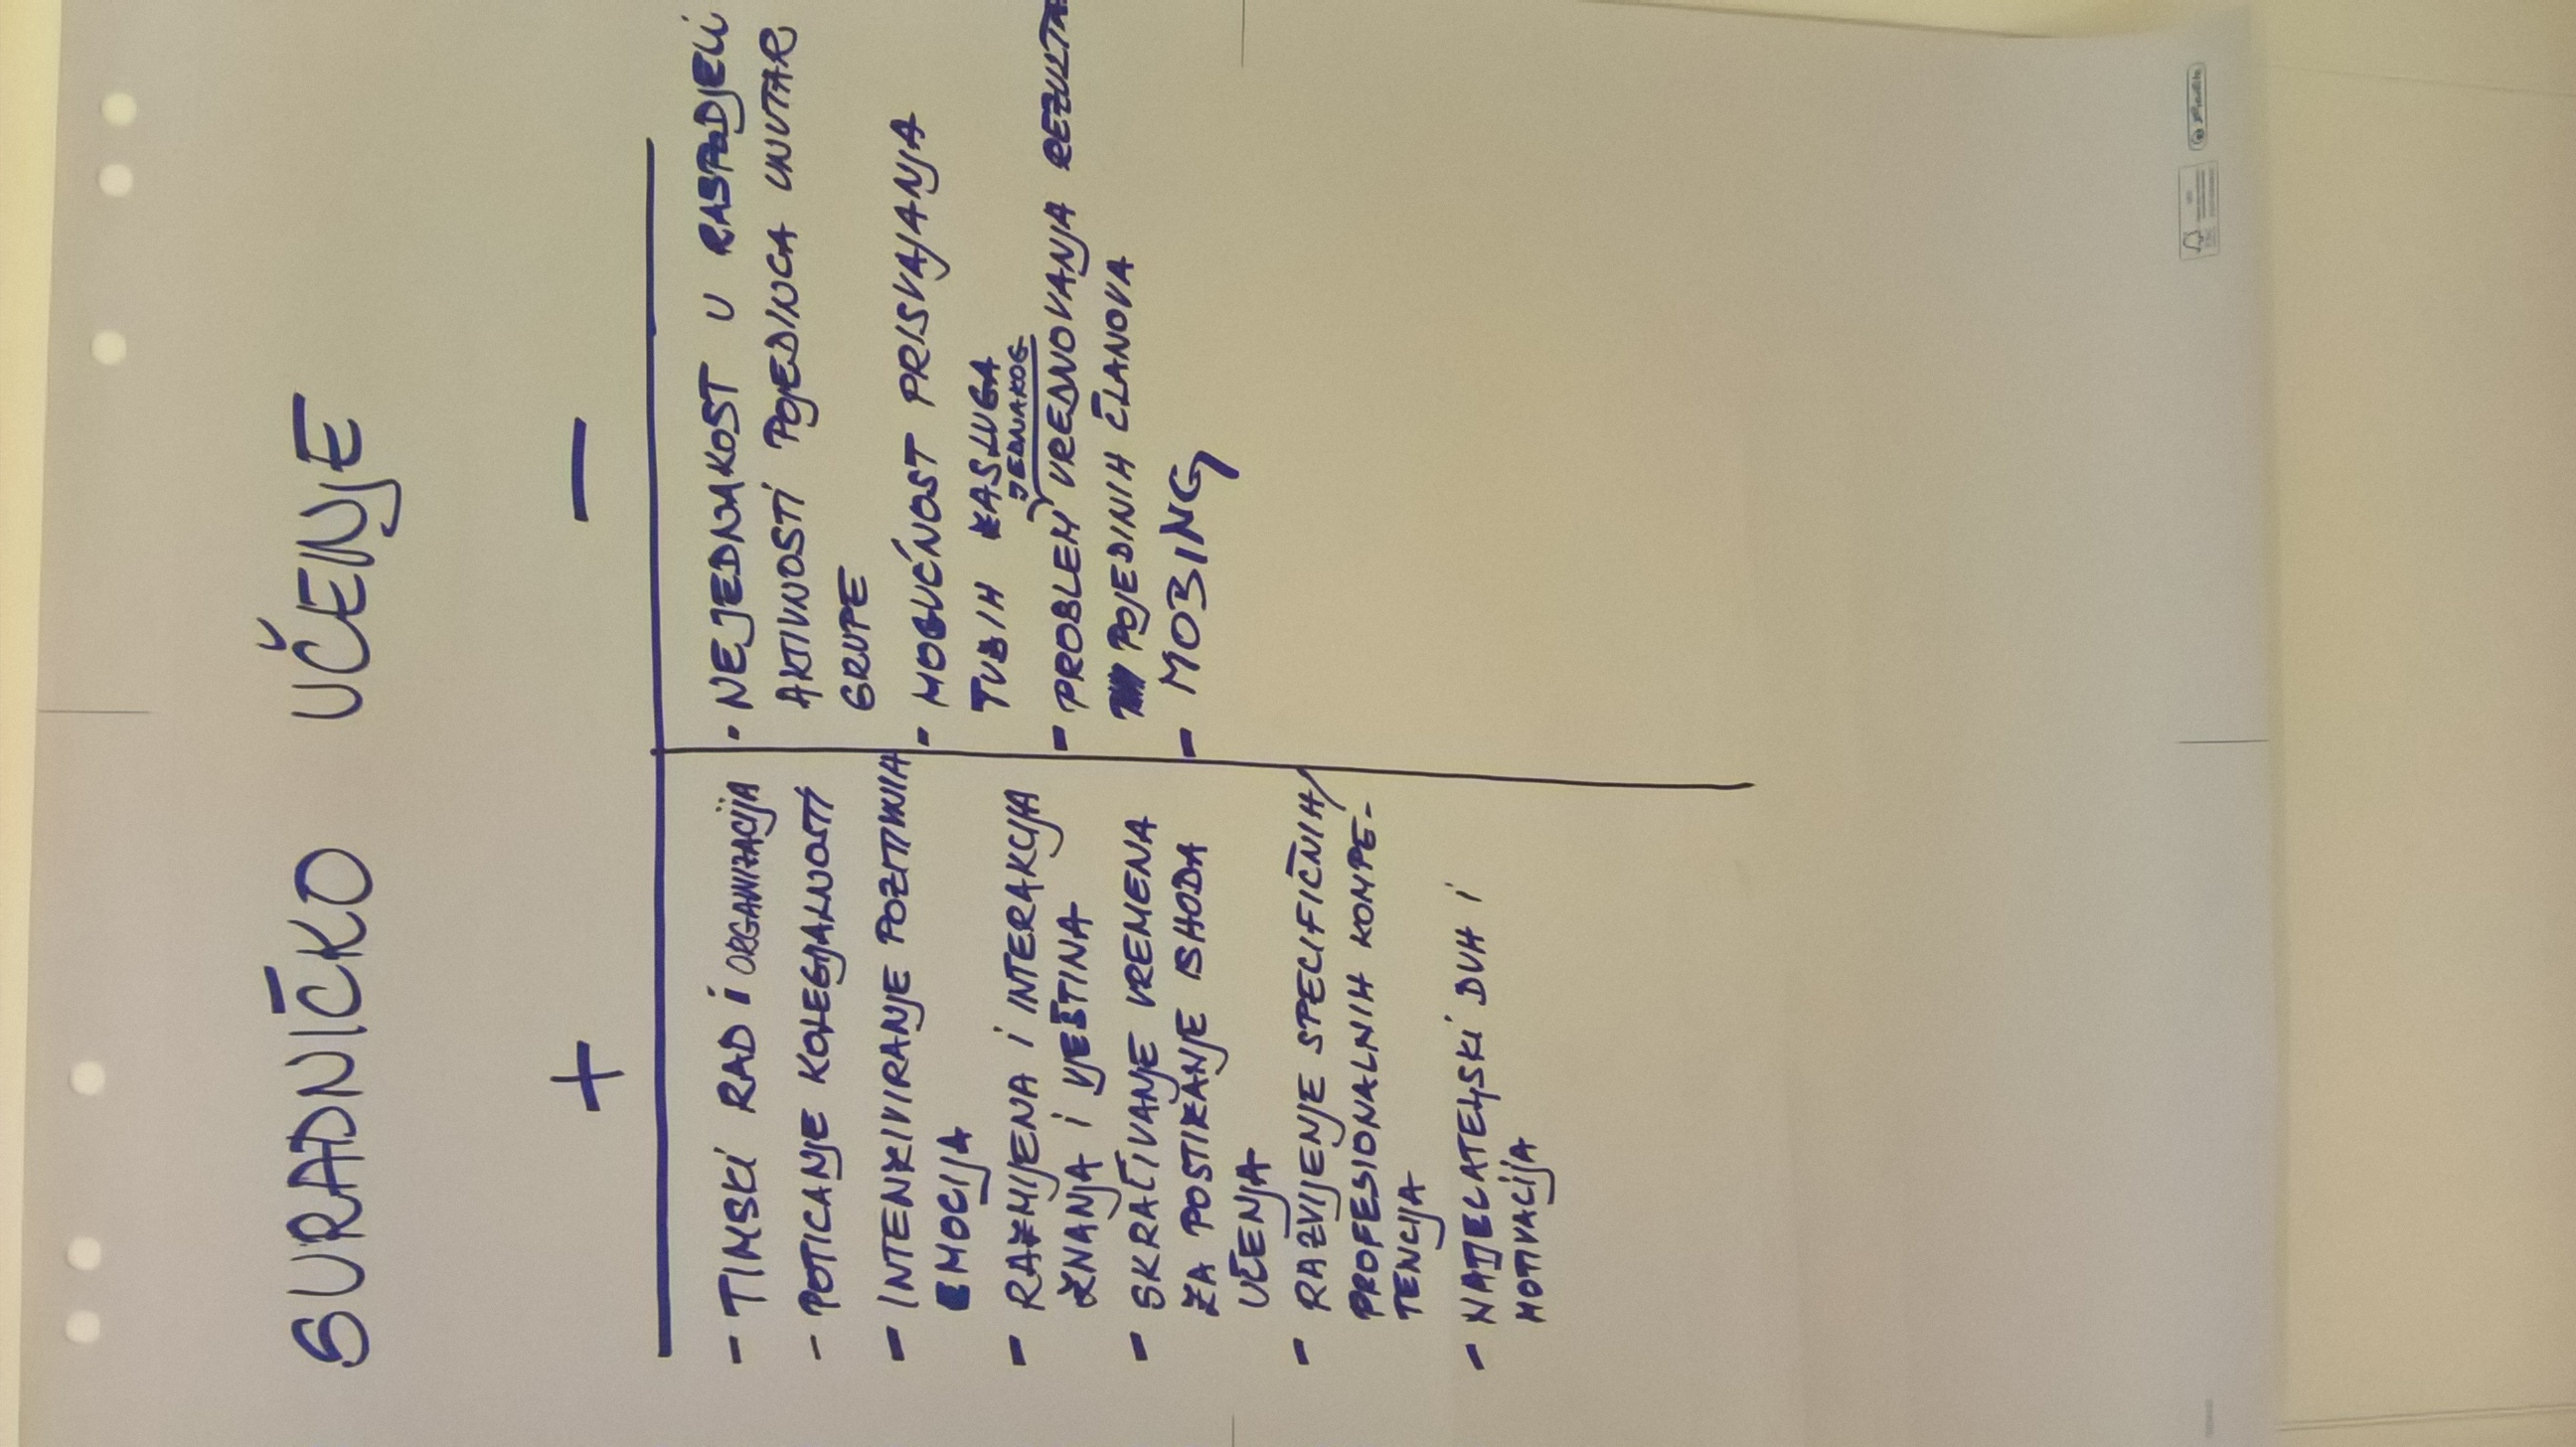 SURADNIČKO UČENJE
+
- TIMSKI RAD I ORGANIZACIJA
- POTICANJE KOLEGIJALNOSTI
- INTENZIVIRANJE POZITIVNIH
EMOCIJA
- RAZMIJENA I INTERAKCIJA
ZNANJA I VJEŠTINA
- SKRAČIVANJE VREMENA
ZA POSTIZANJE ISHODA
UČENJA
- RAZVIJENJE SPECIFIČNIH/
PROFESIONALNIH KOMPE-
TENCIJA
- NATJECATELJSKI DUH I
MOTIVACIJA
-
- NEJEDNAKOST U RASPODJELI
AKTIVNOSTI POJEDINCA UNUTAR
GRUPE
- MOGUĆNOST PRISVAJANJA
TUĐIH ZASLUGA
JEDNAKOG
- PROBLEM VREDNOVANJA REZULTA
POJEDINIH ČLANOVA
- MOBING